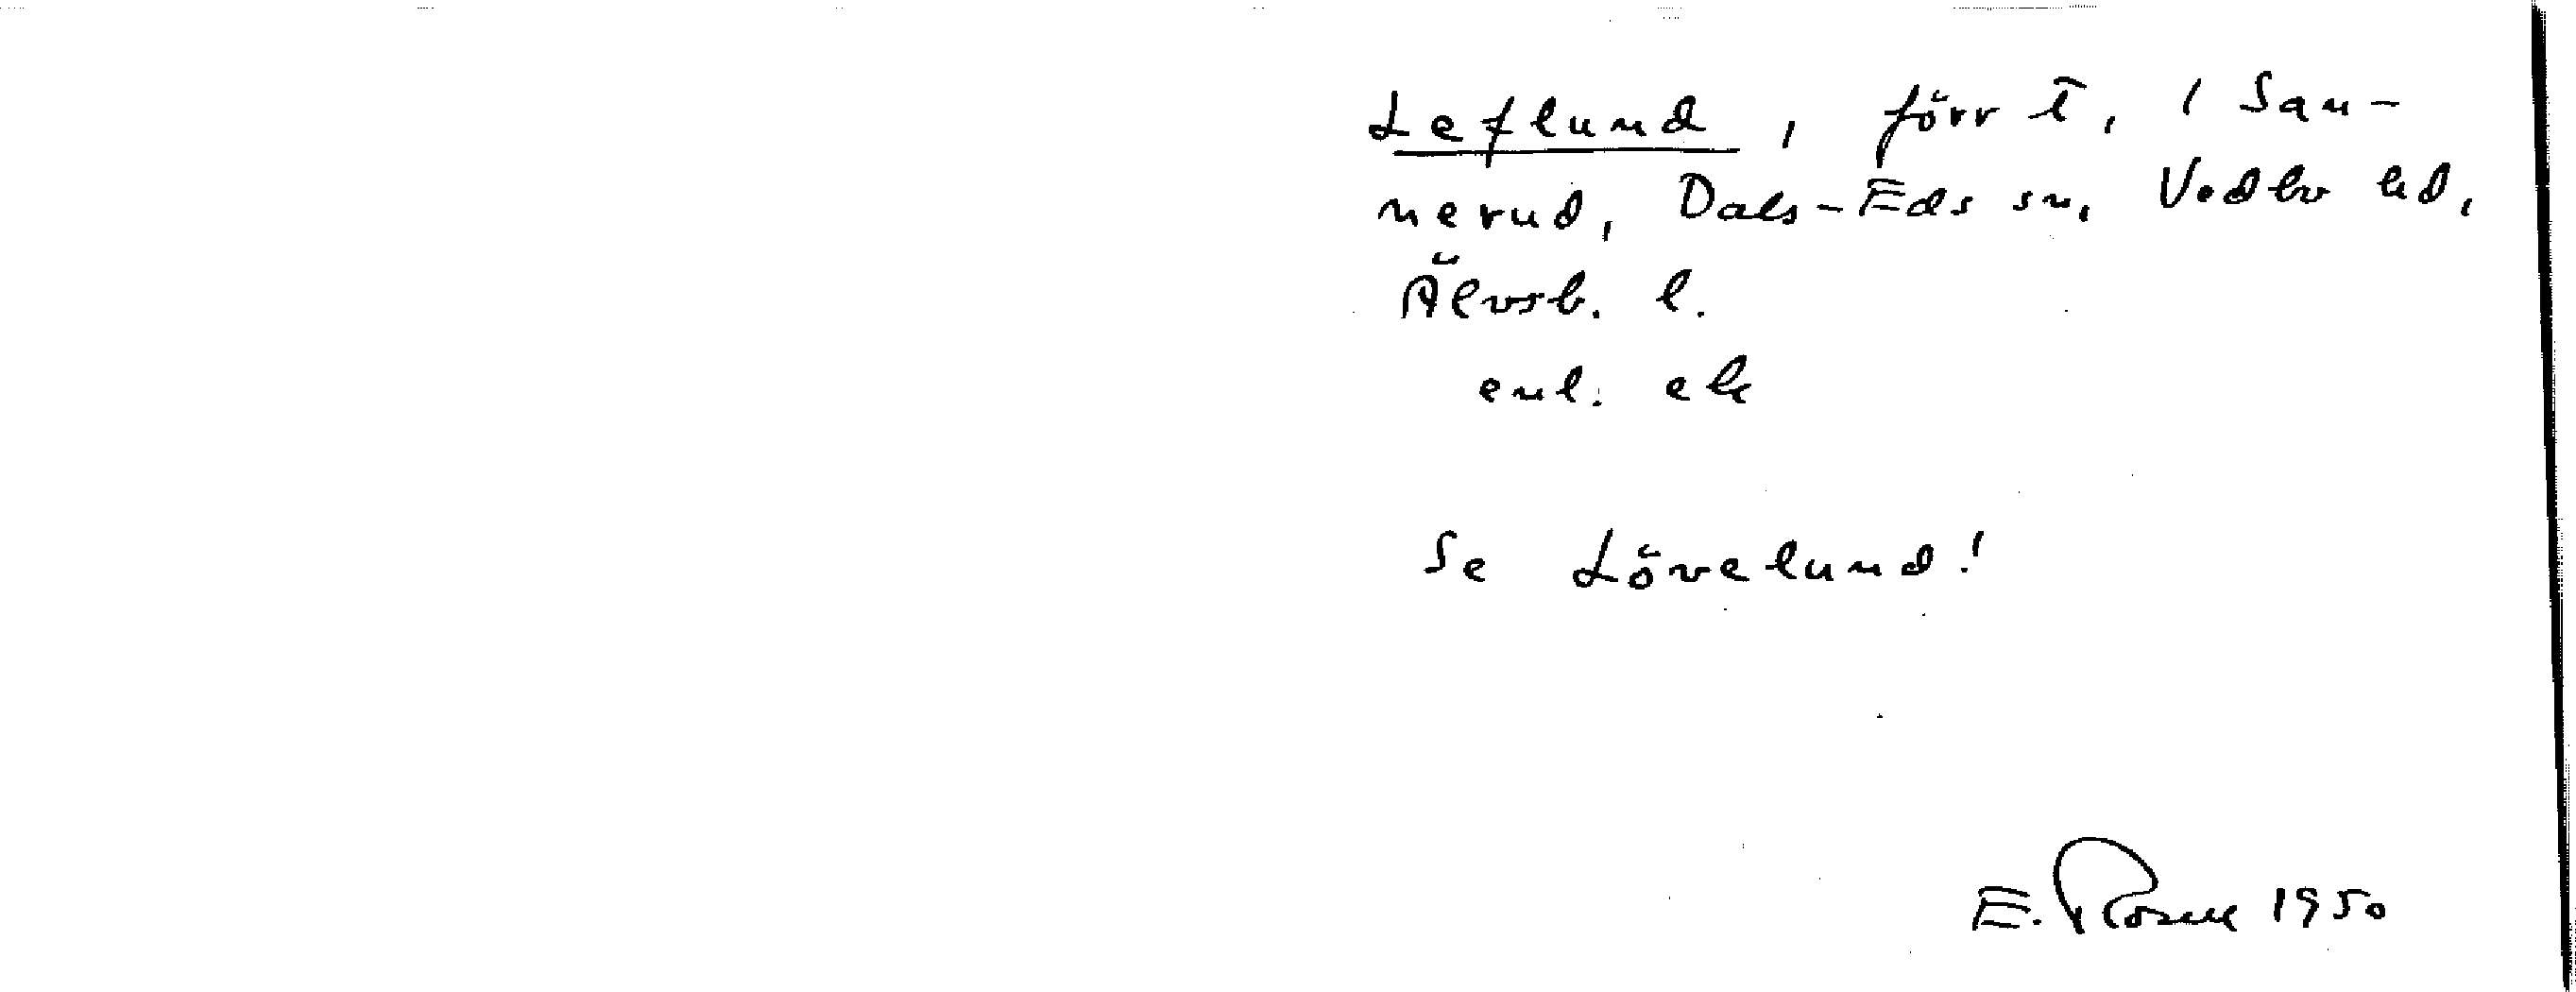 Leflund, förr t, 1 San-
nerud, Dals-Eds sn, Vedbo hd,
Älvsb. l.
enl. ek
Se Lövelund!
E. Rosell 1950